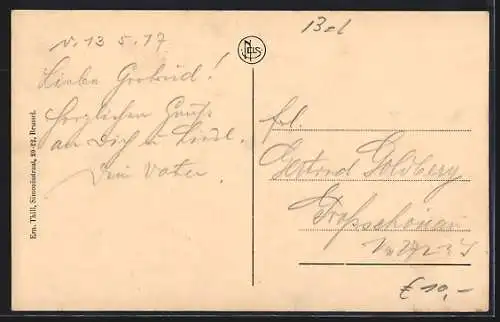 v. 13 5. 17.
Liebe Gertrud!
Herzlichen Gruß
an Dich u.
Dein Vater.
Ern. Thill, Simonisstraat, 20-22, Brussel.
NELS
Bel
Frl.
Gertrud Goldberg
Großschönau
€ 10,-